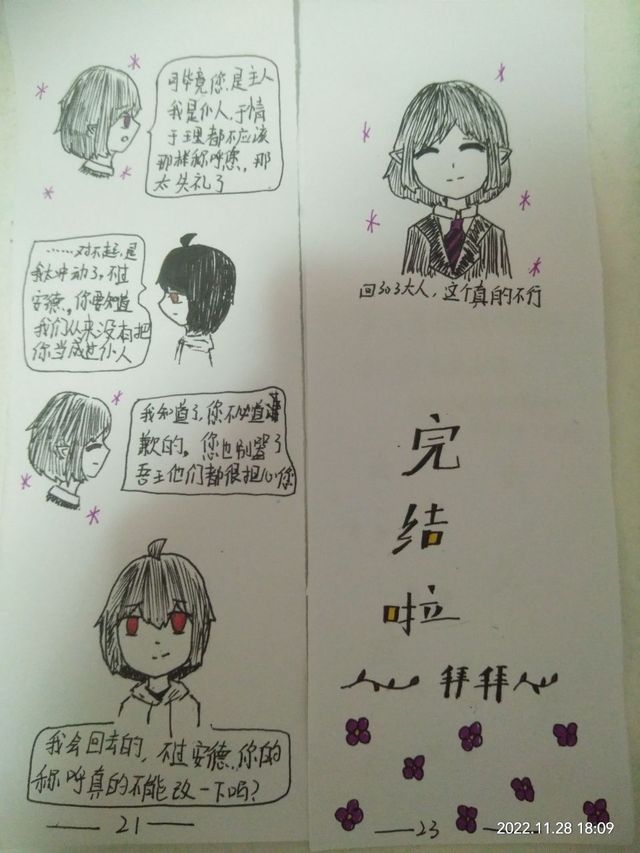 可毕竟您是主人
我是仆人,于情
于理都不应该
那样称呼您,那
太失礼了
……对不起,是
我太冲动了,不过
安德,你要知道
我们从来没有把
你当成过仆人
我知道了,您不知道
歉的。您也别哭了
吾王他们都很担心你
我会回去的,不过安德,你的
称呼真的不能改一下吗?
21
大人,这个真的不行
完
结
啦
拜拜
23
2022.11.28 18:09